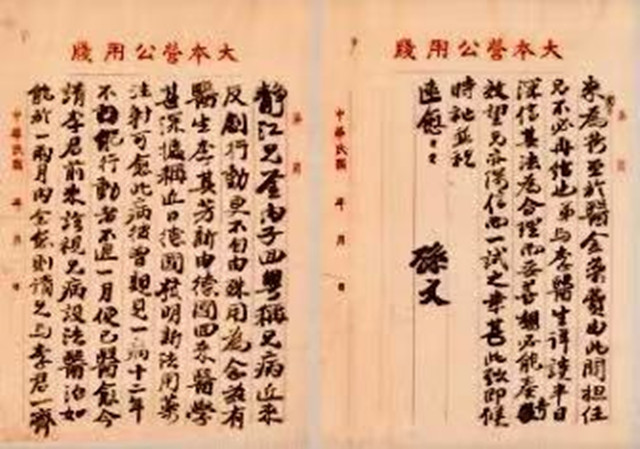 大本營公用牋
靜江兄鑒子回粤稱兄病近来
反劇行動更不自由殊用為念兹有
醫生李其芳新由德國回来醫學
甚深據稱近日德國發明新法用藥
注射可愈此病彼曾親見一病十二年
不能行動者不過一月便已醫愈今
請李君前来診視兄病設法醫治如
能於一兩月內全愈則請兄與李君一齊
中華民國 年 月 日
大本營公用牋
来為荷至於醫金藥費由此間担任
兄不必再給也弟與李醫生詳談半日
深信其法為合理而妥善想必能奏奇
效望兄亦深信而一試之幸甚此致即候
時祉並祝
速愈
孫文
中華民國 年 月 日